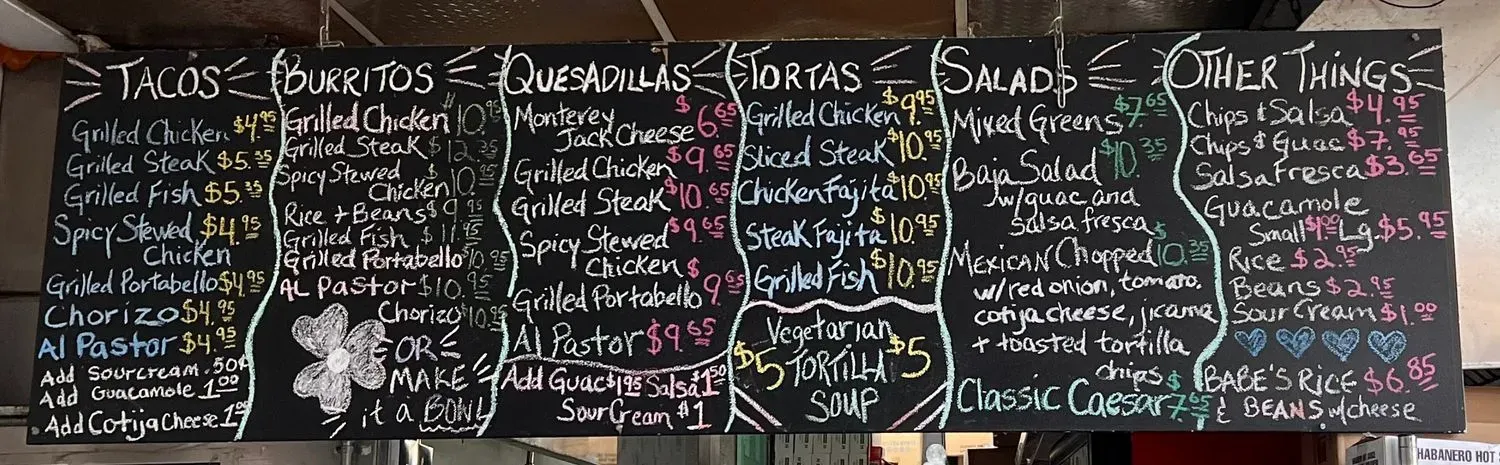 TACOS
Grilled Chicken $4.95
Grilled Steak $5.35
Grilled Fish $5.35
Spicy Stewed $4.95
Chicken
Grilled Portabello $4.95
Chorizo $4.95
Al Pastor $4.95
Add Sourcream .50¢
Add Guacamole 1.00
Add Cotija Cheese 1.00
BURRITOS
Grilled Chicken $10.95
Grilled Steak $12.35
Spicy Stewed $
Chicken 10.95
Rice + Beans $9.95
Grilled Fish $11.95
Grilled Portabello $10.95
AL PASTOR $10.95
Chorizo $10.95
OR
MAKE
it a BOWL
QUESADILLAS
Monterey $6.65
Jack Cheese
Grilled Chicken $9.65
Grilled Steak $10.65
Spicy Stewed $9.65
Chicken $
Grilled Portabello 9.65
Al Pastor $9.65
Add Guac $1.95 Salsa $1.50
Sour Cream $1
TORTAS
Grilled Chicken $9.95
Sliced Steak $10.95
Chicken Fajita $10.95
Steak Fajita $10.95
Grilled Fish $10.95
Vegetarian
$5 TORTILLA $5
SOUP
SALADS
Mixed Greens $7.65
Baja Salad $10.35
w/guac and
salsa fresca
MEXICAN Chopped $10.35
w/red onion, tomato,
cotija cheese, jicama
+ toasted tortilla
chips
Classic Caesar $7.65
OTHER THINGS
Chips & Salsa $4.95
Chips & Guac $7.95
Salsa Fresca $3.65
Guacamole
Small $1.00 Lg. $5.95
Rice $2.95
Beans $2.95
Sour Cream $1.00
BABE'S RICE $6.85
& BEANS w/cheese
HABANERO HOT